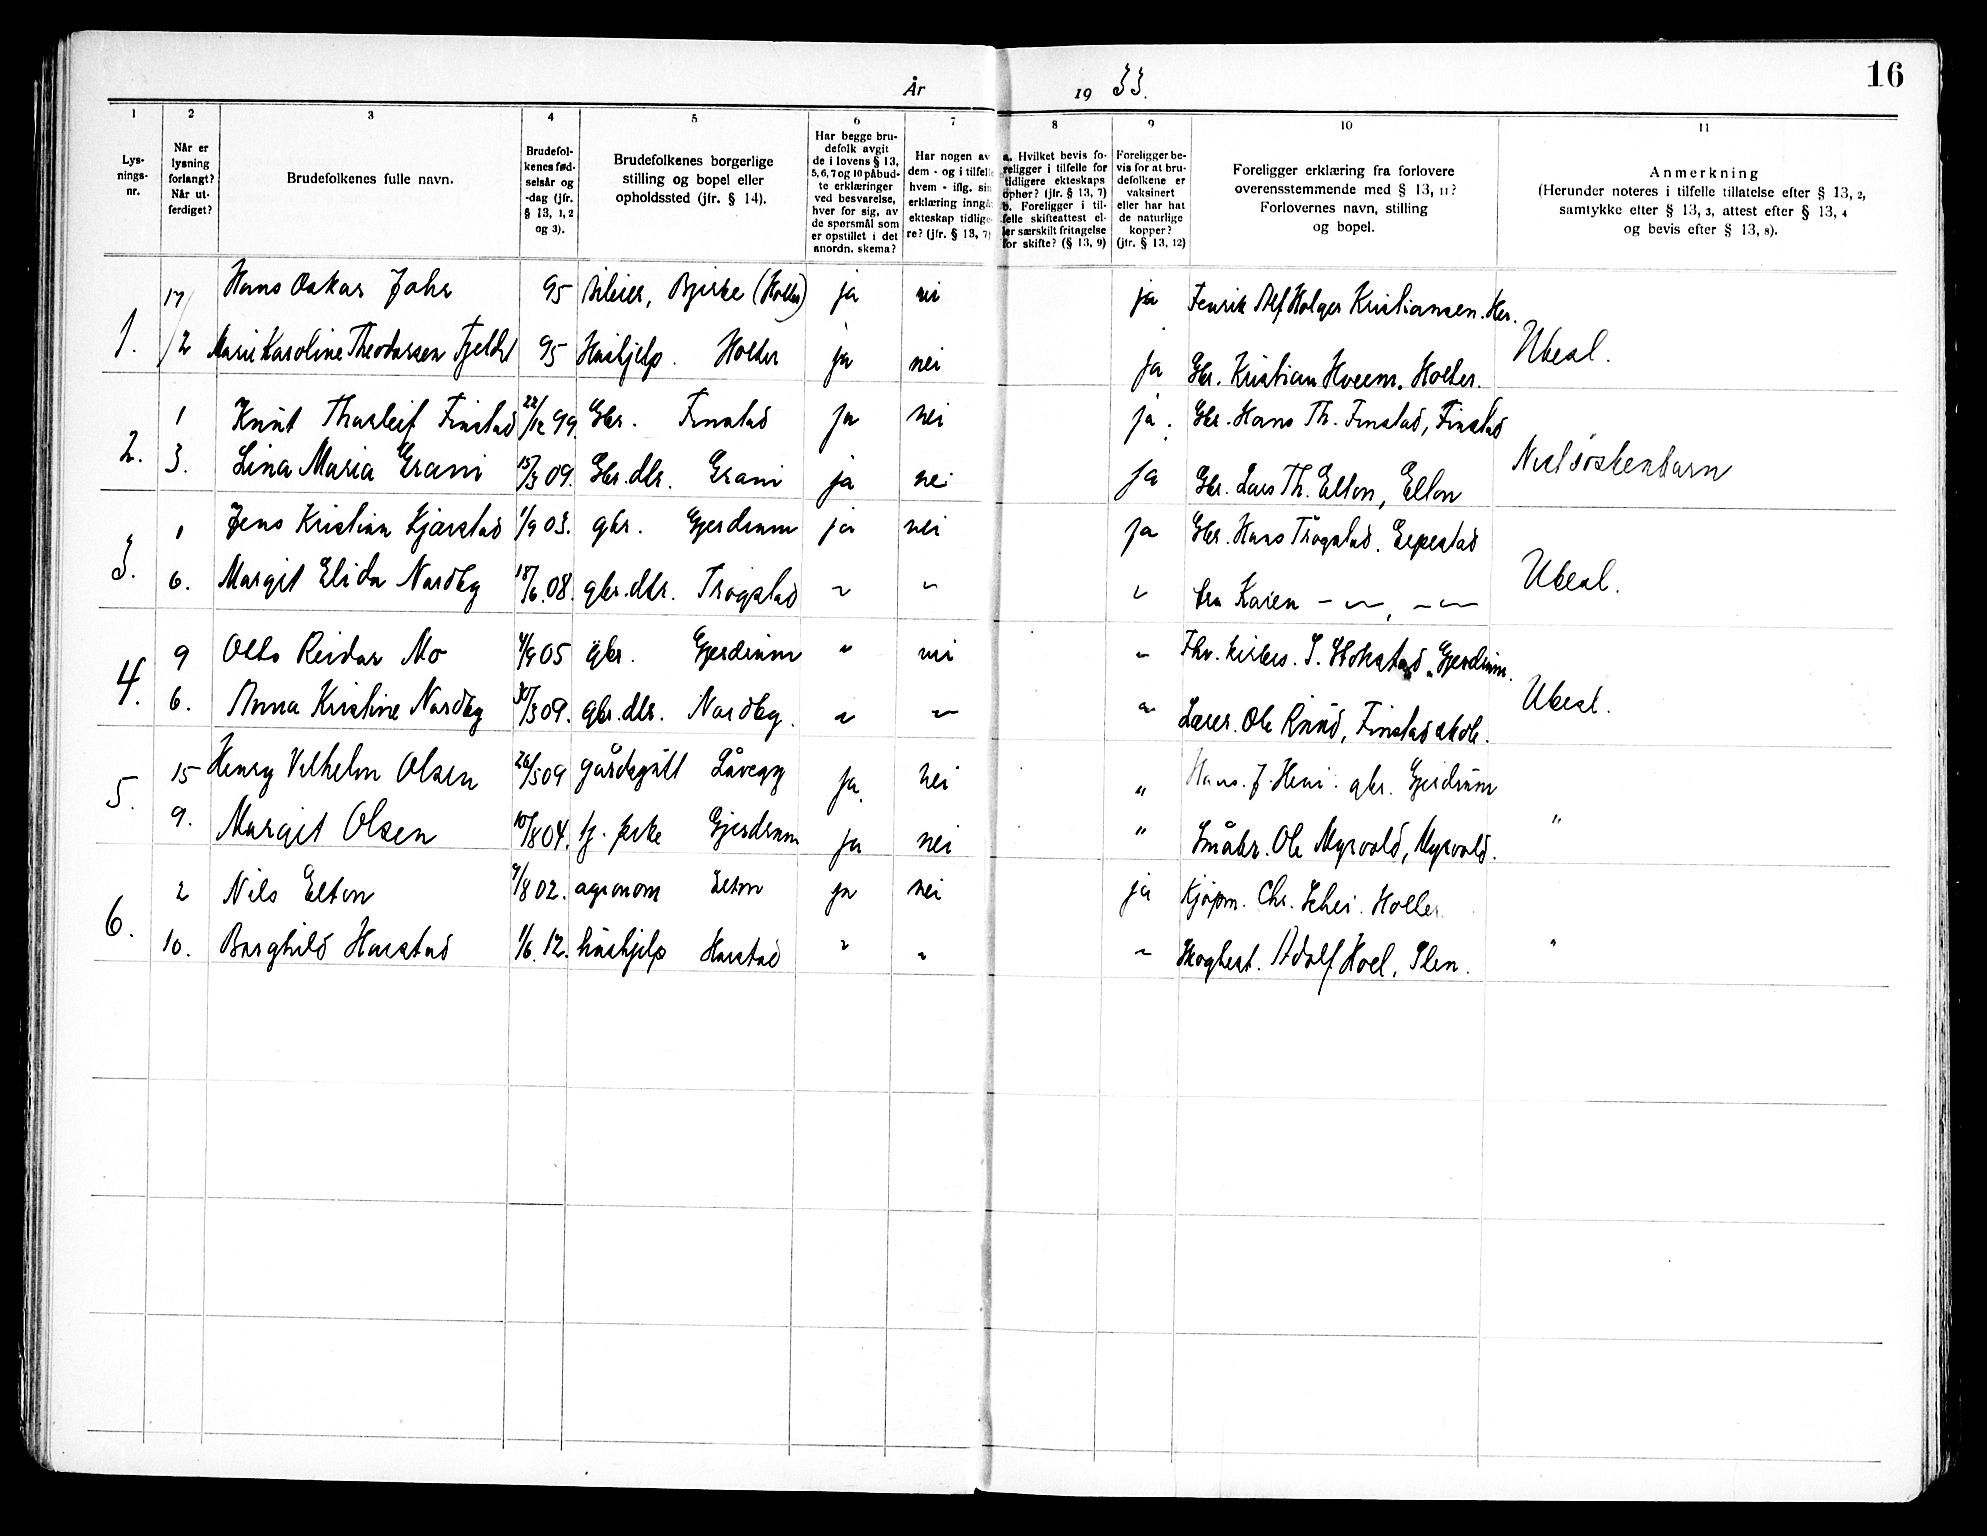 År 19 33.
16
1 2 3 4 5 6 7 8 9 10 11
Lys-
nings-
nr.
Når er
lysning
forlangt?
Når ut-
ferdiget?
Brudefolkenes fulle navn.
Brudefol-
kenes fød-
selsår og
-dag (jfr.
§ 13, 1, 2
og 3).
Brudefolkenes borgerlige
stilling og bopel eller
opholdssted (jfr. § 14).
Har begge bru-
defolk avgit
de i lovens § 13,
5, 6, 7 og 10 påbud-
te erklæringer
ved besvarelse,
hver for sig, av
de spørsmål som
er opstillet i det
anordn. skema?
Har nogen av
dem - og i tilfelle
hvem - iflg. sin
erklæring inngå
ekteskap tidlige-
re? (jfr. § 13, 7)
a. Hvilket bevis fo-
religger i tilfelle for
tidligere ekteskaps
ophør? (jfr. § 13, 7)
b. Foreligger i til-
felle skifteattest el-
ler særskilt fritagelse
for skifte? (§ 13, 9)
Foreligger be-
vis for at bru-
defolkene er
vaksinert
eller har hat
de naturlige
kopper?
(jfr. § 13, 12)
Foreligger erklæring fra forlovere
overensstemmende med § 13, 11?
Forlovernes navn, stilling
og bopel.
Anmerkning
(Herunder noteres i tilfelle tillatelse efter § 13, 2,
samtykke efter § 13, 3, attest efter § 13, 4
og bevis efter § 13, 8).
1. 17/ Hans Oskar Johr 95 Bileier, Bjerke (Holter) ja nei ja Fenrik Alf Holger Kristiansen. Her.
/2 Marie Karoline Theodorsen Fjeldet 95 Hushjelp. Holter ja nei ja Gbr. Kristian Hveem. Holter. Ubesl.
2. 1 Knut Thorleif Finstad 22/12 99. Gbr. Finstad ja nei ja. Gbr. Hans Th. Finstad, Finstad
3. Lina Maria Erami 15/3 09. Gbr. dtr. Erami ja nei ja Gbr. Lars Th. Elton, Elton Nestsøskenbarn
3. 1 Jens Kristian Kjærstad 1/9 03. gbr. Gjerdrum ja nei ja Gbr. Hans Trøgstad. Eepestad
6. Margit Elida Nordby 18/6. 08. gbr. dtr. Trøgstad " " " fru Karen - " - , - " - Ubesl.
4. 9 Otto Reidar Mo 4/9 05 gbr. Gjerdrum " nei " Fhv. kirkes. S. Hokstad. Gjerdrum.
6. Anna Kristine Nordby 30/3 09. gbr. dtr. Nordby. " " " Lærer. Ole Ruud, Finstad skole. Ubesl.
5. 15 Henry Vilhelm Olsen 26/5 09 gårdsgutt Låvegg ja. nei " Hans. J. Heni. gbr. Gjerdrum
9. Margit Olsen 10/8 04. tj. pike Gjerdrum ja nei " Småbr. Ole Myrvold, Myrvold. "
6. 2 Nils Elton 9/8 02. agronom Elton ja nei ja Kjøpm. Chr. Schei. Holter
10. Borghild Harstad 1/6. 12. hushjelp Harstad " " " Skogbest. Adolf Hoel, Olen. "